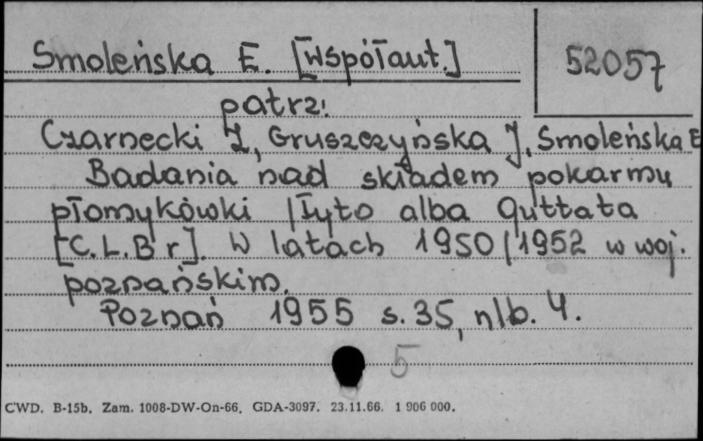 Smoleńska E. [Współaut.]
52057
patrz:
Czarnecki Z, Gruszczyńska J, Smoleńska E
Badania nad składem pokarmu
płomykówki /Tyto alba guttata
[C.L.Br]. W latach 1950/1952 w woj.
poznańskim.
Poznań 1955 s. 35, nlb. 4.
5
CWD. B-15b. Zam. 1008-DW-On-66. GDA-3097. 23.11.66. 1 906 000.